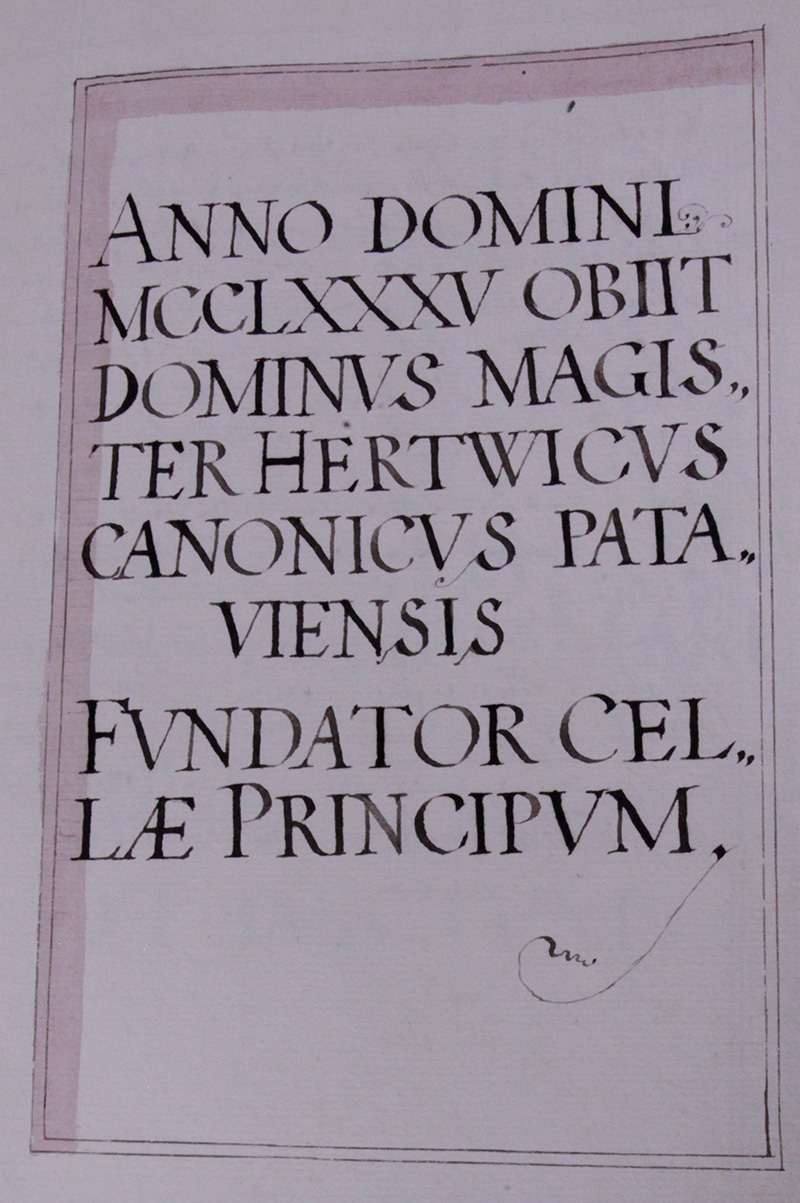 ANNO DOMINI
MCCLXXXV OBIIT
DOMINVS MAGIS„
TER HERTWICVS
CANONICVS PATA„
VIENSIS
FVNDATOR CEL„
LÆ PRINCIPVM.